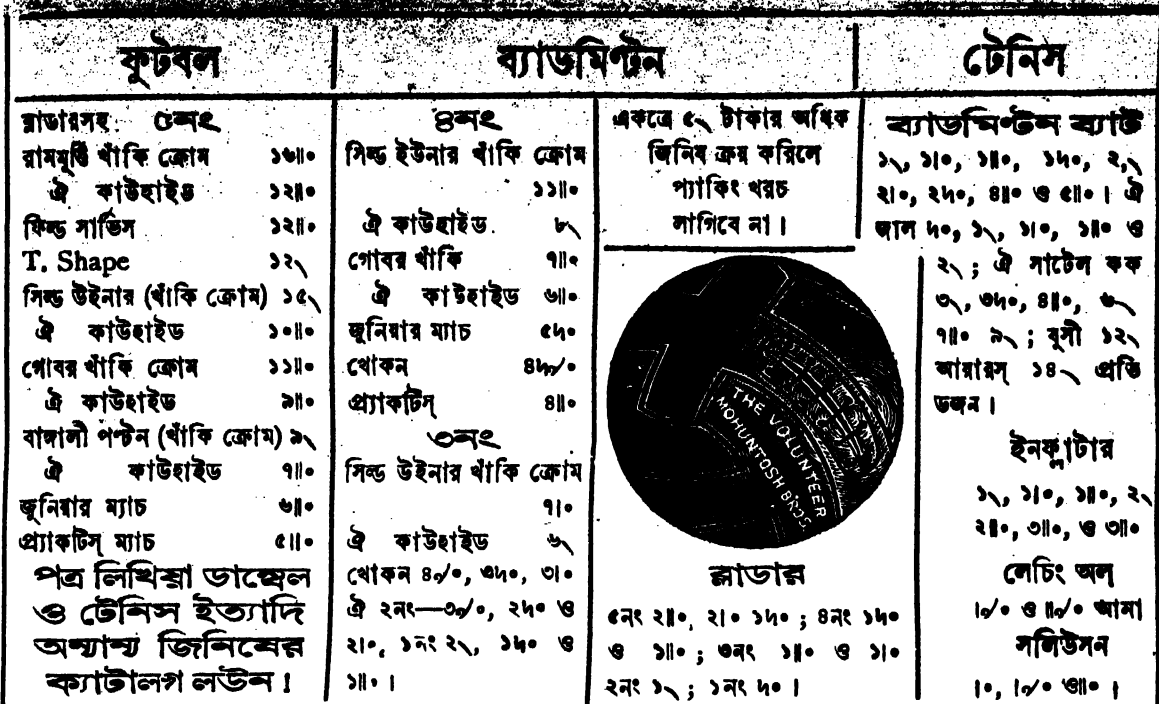 ফুটবল
ব্যাডমিণ্টন
টেনিস
ব্লাডারসহ ৫নং
রামমূর্ত্তি খাঁকি ক্রোম ১৬॥০
ঐ কাউহাইড ১২॥০
ফিল্ড সার্ভিস ১২॥০
T. Shape ১২৲
সিল্ড উইনার (খাঁকি ক্রোম) ১৫৲
ঐ কাউহাইড ১০॥০
গোবর খাঁকি ক্রোম ১১॥০
ঐ কাউহাইড ৯॥০
বাঙ্গালী পণ্টন (খাঁকি ক্রোম) ৯৲
ঐ কাউহাইড ৭॥০
জুনিয়ার ম্যাচ ৬॥০
প্র্যাকটিস্ ম্যাচ ৫॥০
পত্র লিখিয়া ডাম্বেল
ও টেনিস ইত্যাদি
অন্যান্য জিনিষের
ক্যাটালগ লউন।
৪নং
সিল্ড ইউনার খাঁকি ক্রোম
১১॥০
ঐ কাউহাইড ৮৲
গোবর খাঁকি ৭॥০
ঐ কাউহাইড ৬॥০
জুনিয়ার ম্যাচ ৫৸০
খোকন ৪৸৵০
প্র্যাকটিস্ ৪॥০
৩নং
সিল্ড উইনার খাঁকি ক্রোম
৭।০
ঐ কাউহাইড ৬৲
খোকন ৪৵০, ৩৸০, ৩।০
ঐ ২নং—৩৵০, ২৸০ ও
২।০, ১নং ২৲, ১৸০ ও
১॥০।
একত্রে ৫৲ টাকার অধিক
জিনিষ ক্রয় করিলে
প্যাকিং খরচ
লাগিবে না।
THE VOLUNTEER
MOHUNTOSH BROS.
ব্লাডার
৫নং ২॥০, ২।০ ১৸০ ; ৪নং ১৸০
ও ১॥০ ; ৩নং ১॥০ ও ১।০
২নং ১৲ ; ১নং ৸০।
ব্যাডমিণ্টন ব্যাট
১৲, ১।০, ১॥০, ১৸০, ২৲
২।০, ২৸০, ৪॥০ ও ৫॥০। ঐ
জাল ৸০, ১৲, ১।০, ১॥০ ও
২৲ ; ঐ সাটেল কক
৩৲, ৩৸০, ৪॥০, ৬৲
৭॥০ ৯৲ ; বুসী ১২৲
আয়ারস্ ১৪৲ প্রতি
ডজন।
ইনফ্লাটার
১৲, ১।০, ১॥০, ২৲
২॥০, ৩॥০, ও ৩॥০
লেচিং অল্
।৵০ ও ॥৵০ আনা
সলিউসন
।০, ।৵০ ও॥০।